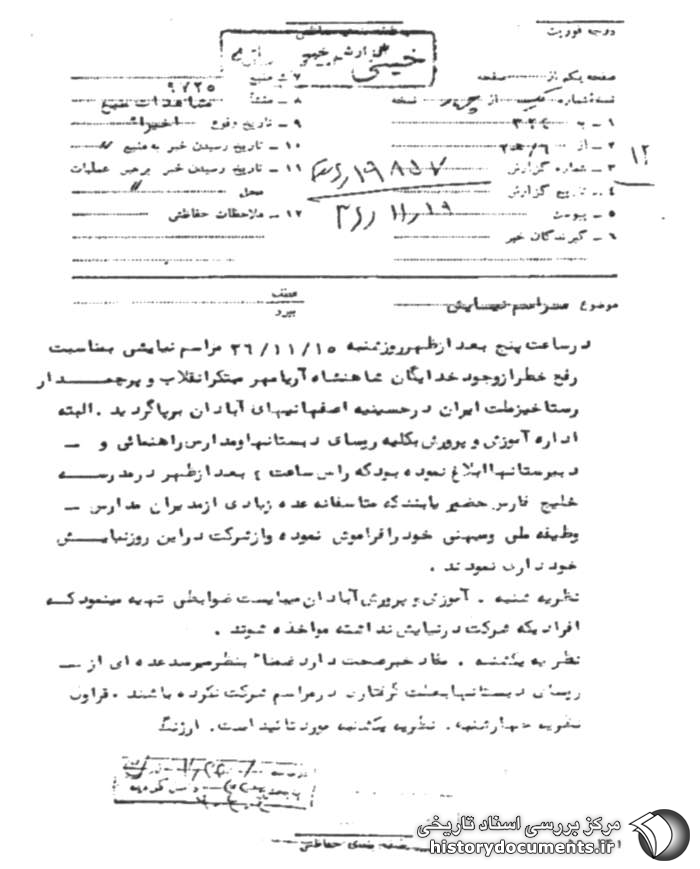 درجه فوریت
طبقه بندی حفاظتی
گزارش خبر
خیلی
صفحه یکم از صفحه
نسخه شماره یک از چهار نسخه
۱ - به ۳۴۲
۲ - از ۲۰ ه‍ ۶
۳ - شماره گزارش
۴ - تاریخ گزارش ۳۶/۱۱/۱۹
۵ - پیوست
۶ - گیرندگان خبر
۱۲
۷ - منبع ۹۷۲۵
۸ - منشأ مشاهدات منبع
۹ - تاریخ وقوع اخیرا"
۱۰ - تاریخ رسیدن خبر به منبع "
۱۱ - تاریخ رسیدن خبر برهبر عملیات
محل "
۱۲ - ملاحظات حفاظتی
موضوع مراسم نمایش
عطف
پیرو
در ساعت پنج بعد از ظهر روز شنبه ۲۶/۱۱/۱۵ مراسم نمایشی بمناسبت
رفع خطر از وجود خدایگان شاهنشاه آریامهر مبتکر انقلاب و پرچمدار
رستاخیز ملت ایران در حسینیه اصفهانیهای آبادان برپا گردید . البته
اداره آموزش و پرورش بکلیه رسای دبستانها و مدارس راهنمائی و -
دبیرستانها ابلاغ نموده بود که راس ساعت ۴ بعد از ظهر در مدرسه
خلیج فارس حضور یابند که متاسفانه عده زیادی از مدیران مدارس -
وظیفه ملی و میهنی خود را فراموش نموده و از شرکت در این روز نمایش
خودداری نمودند .
نظریه شنبه . آموزش و پرورش آبادان میبایست ضوابطی تهیه مینمود که
افرادیکه شرکت در نمایش نداشته مواخذه شوند .
نظریه یکشنبه . مفاد خبر صحت دارد ضمنا" بنظر میرسد عده ای از -
رسای دبستانها بعلت گرفتاری در مراسم شرکت نکرده باشند . فراون
نظریه چهارشنبه . نظریه یکشنبه مورد تائید است . ارژنگ
طبقه بندی حفاظتی
مرکز بررسی اسناد تاریخی
historydocuments.ir